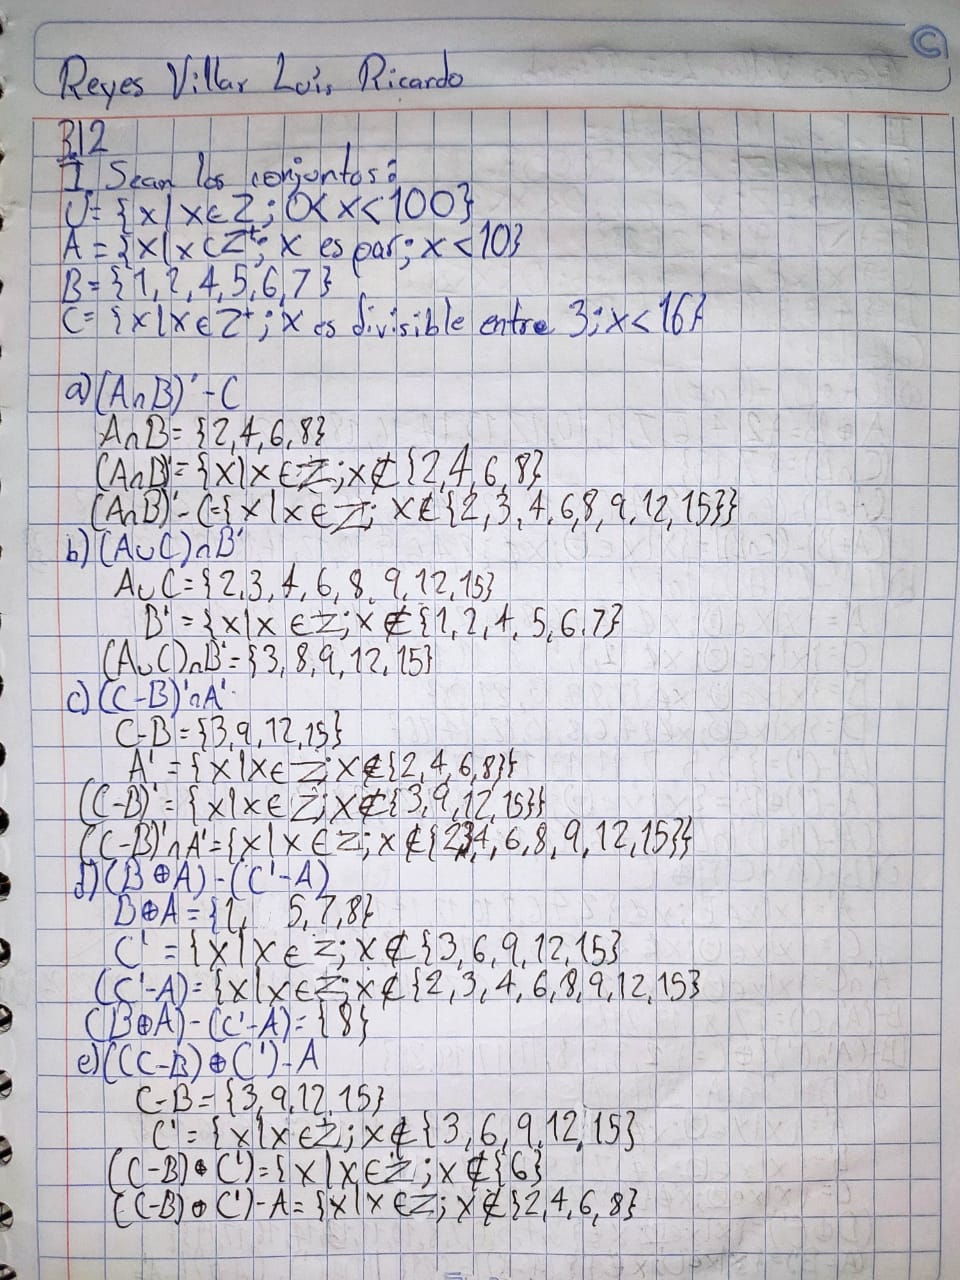 ©
Reyes Villar Luis Ricardo
3.12
I. Sean los conjuntos:
U= {x|x∈Z; 0<x<100}
A = {x|x∈Z⁺; x es par; x<10}
B= {1, 2, 4, 5, 6, 7}
C= {x|x∈Z⁺; x es divisible entre 3; x<16}
a) (A∩B)' - C
A∩B= {2,4,6,8}
(A∩B)'= {x|x∈Z; x∉{2,4,6,8}
(A∩B)'-C={x|x∈Z; x∉{2,3,4,6,8,9,12,15}}
b) (A∪C)∩B'
A∪C= {2,3,4,6,8,9,12,15}
B' = {x|x∈Z; x∉{1,2,4,5,6.7}
(A∪C)∩B'= {3,8,9,12,15}
c) (C-B)'∩A'
C-B= {3,9,12,15}
A' = {x|x∈Z; x∉{2,4,6,8}}
(C-B)'= {x|x∈Z; x∉{3,9,12,15}}
(C-B)'∩A'= {x|x∈Z; x∉{2,3,4,6,8,9,12,15}}
d) (B⊕A)-(C'-A)
B⊕A= {1, 5,7,8}
C' = {x|x∈Z; x∉{3,6,9,12,15}
(C'-A)= {x|x∈Z; x∉{2,3,4,6,8,9,12,15}
(B⊕A)-(C'-A)= {8}
e) ((C-B)⊕C')-A
C-B= {3,9,12,15}
C'= {x|x∈Z; x∉{3,6,9,12,15}
((C-B)⊕C')= {x|x∈Z; x∉{6}
((C-B)⊕C')-A= {x|x∈Z; x∉{2,4,6,8}